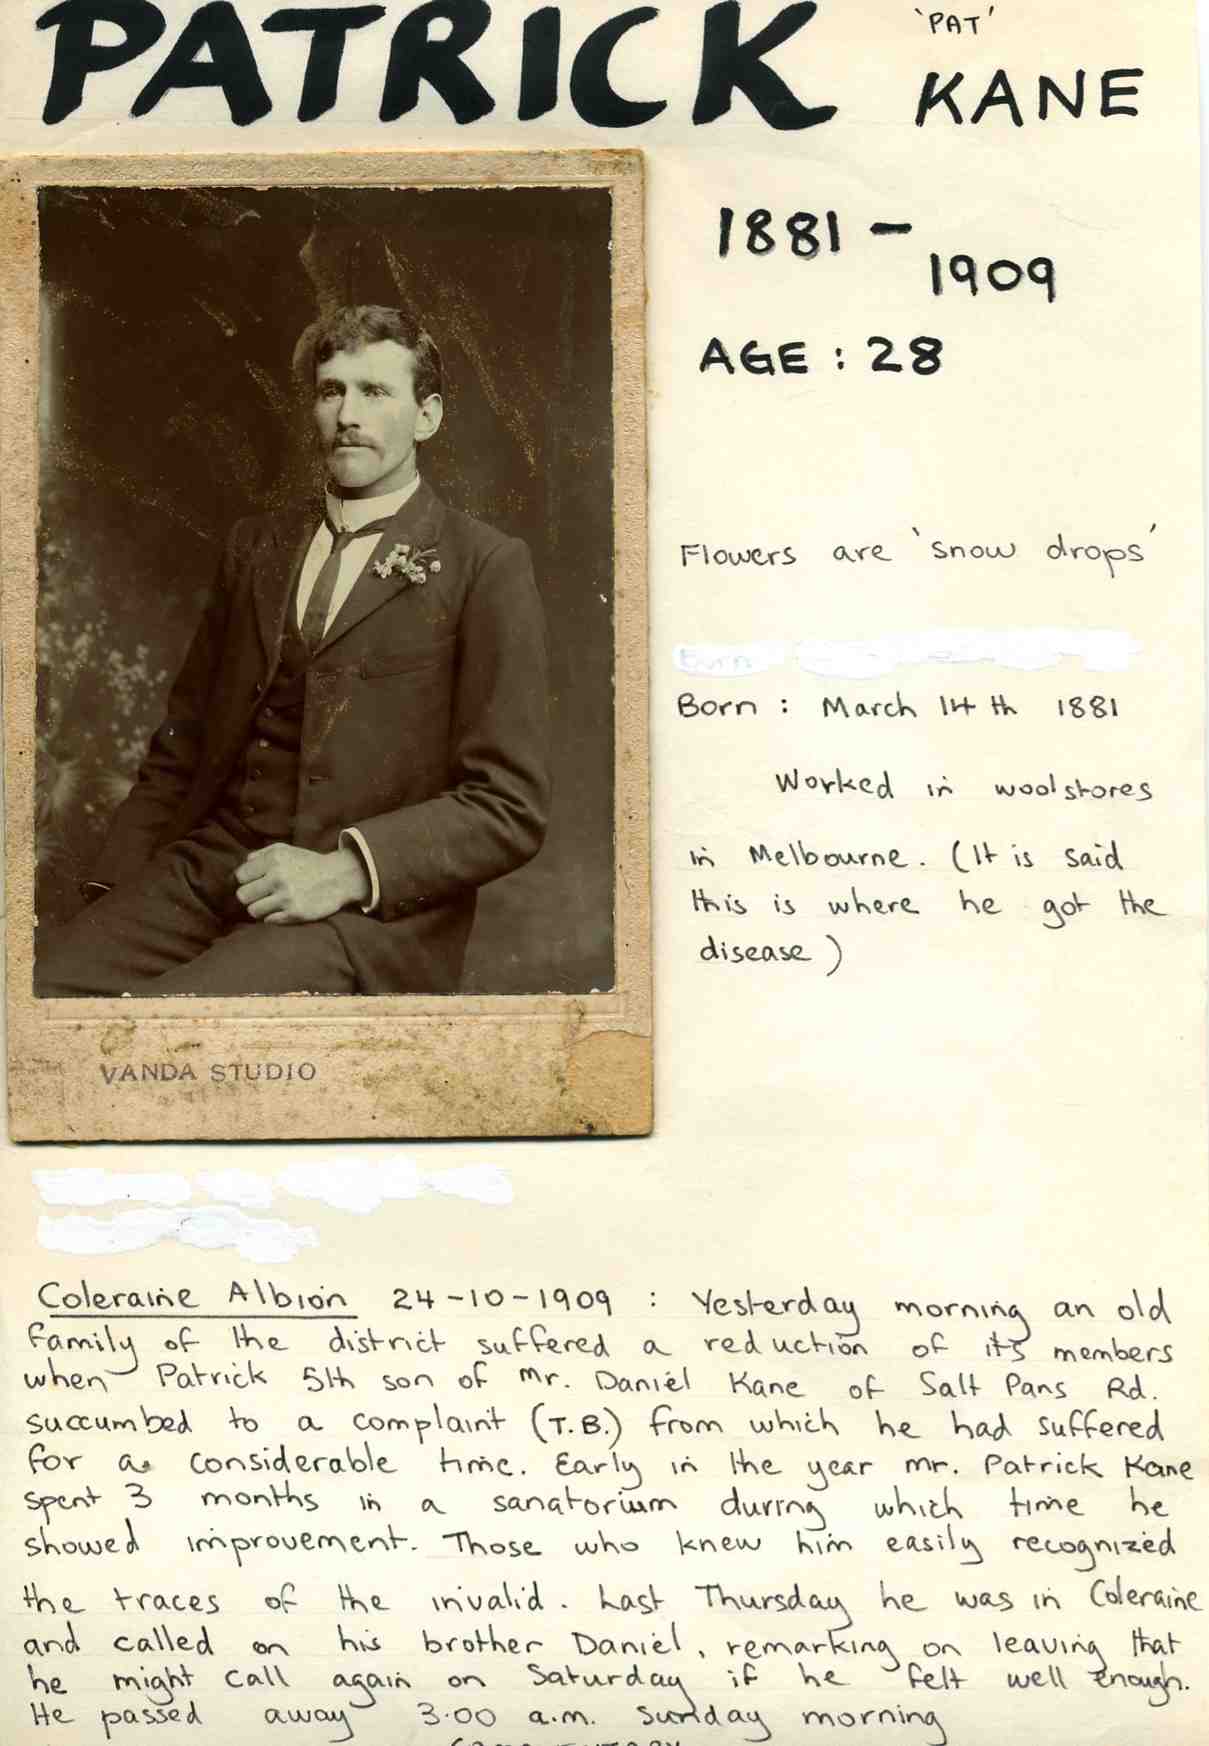 PATRICK 'PAT' KANE
1881 -
1909
AGE : 28
Flowers are 'snow drops'
Born
Born : March 14th 1881
Worked in woolstores
in Melbourne. (It is said
this is where he got the
disease)
VANDA STUDIO
Coleraine Albion 24-10-1909 : Yesterday morning an old
family of the district suffered a reduction of its members
when Patrick 5th son of Mr. Daniel Kane of Salt Pans Rd.
succumbed to a complaint (T.B.) from which he had suffered
for a considerable time. Early in the year Mr. Patrick Kane
spent 3 months in a sanatorium during which time he
showed improvement. Those who knew him easily recognized
the traces of the invalid. Last Thursday he was in Coleraine
and called on his brother Daniel, remarking on leaving that
he might call again on Saturday if he felt well enough.
He passed away 3.00 a.m. Sunday morning